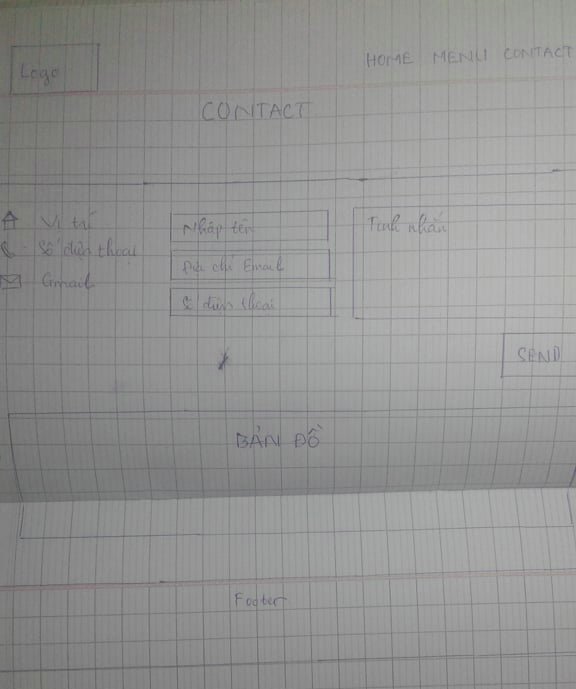 Logo
HOME MENU CONTACT
CONTACT
Vị trí
Số điện thoại
Gmail
Nhập tên
Địa chỉ Email
Số điện thoại
Tinh nhắn
SEND
BẢN ĐỒ
Footer